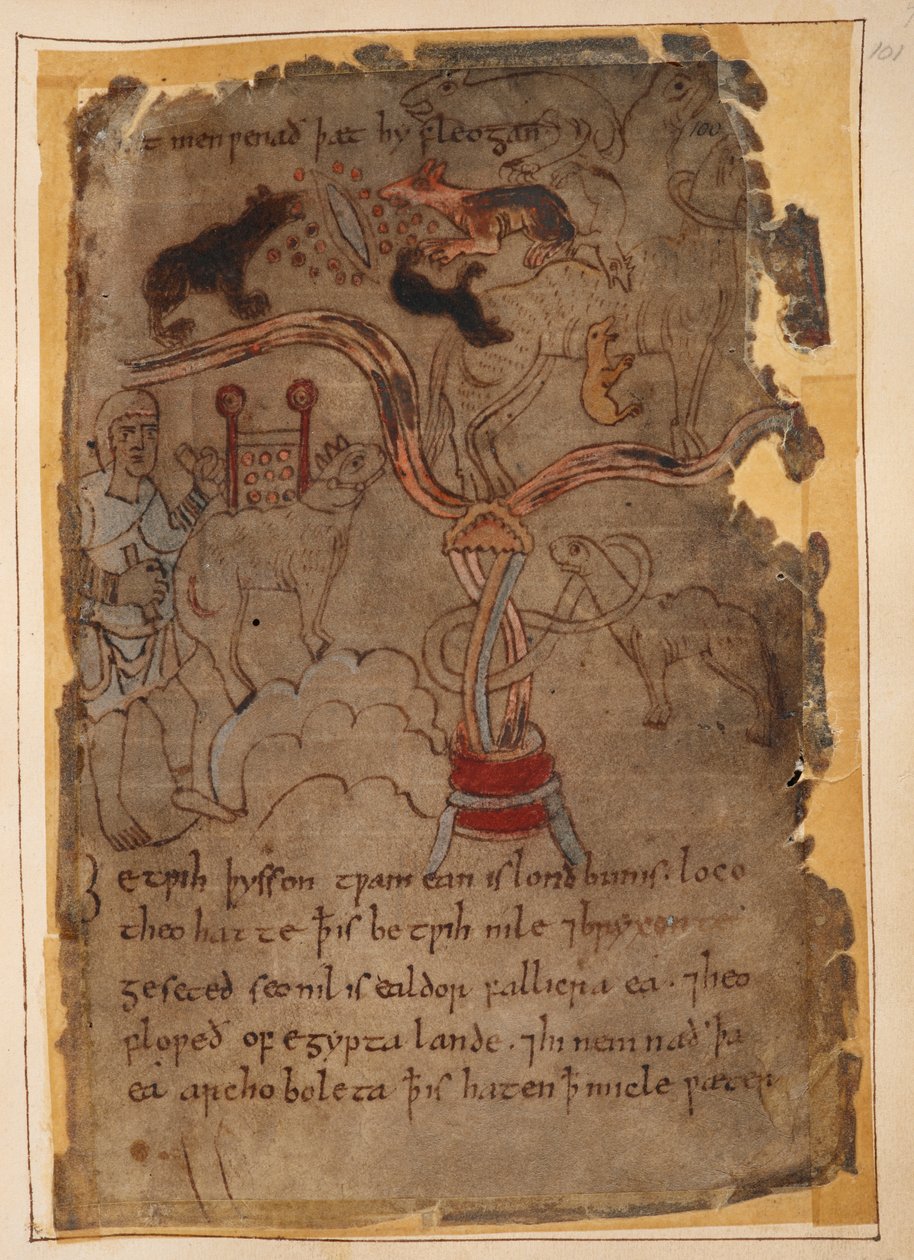 101
100
t men ƿenað þæt hy fleogan
Betƿih þysson tƿam ean is lond bunis. loco
theo hatte ꝥ is betƿih nile ⁊ bryxonte
geseted seo nil is ealdor fallicra ea. ⁊ heo
floƿeð of egypta lande. ⁊ hi nemnað þa
ea archoboleta ꝥ is haten ꝥ micle ƿæter